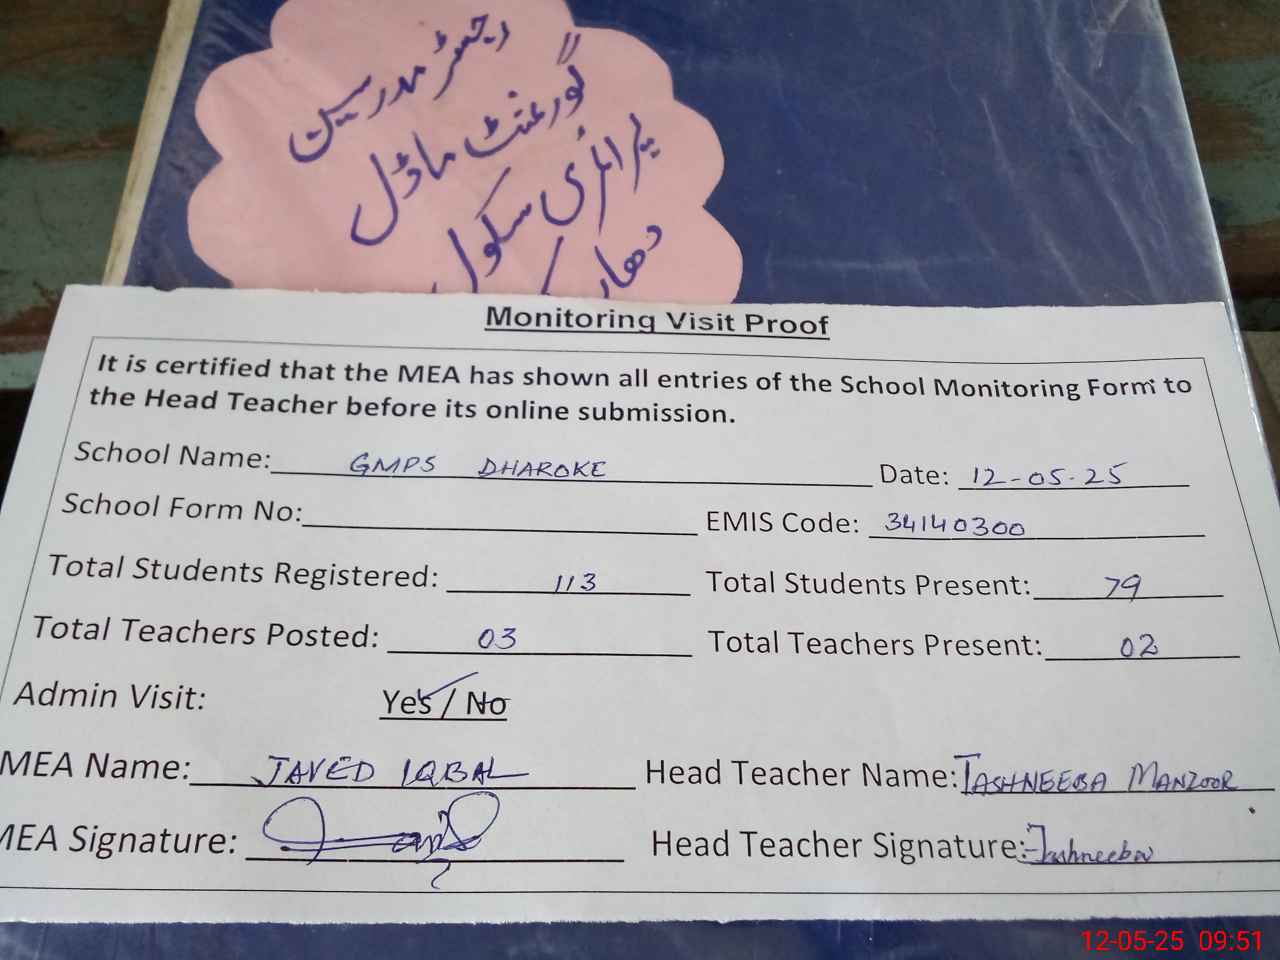 رجسٹر مدرسین
گورنمنٹ ماڈل
پرائمری سکول
دھارو
Monitoring Visit Proof
It is certified that the MEA has shown all entries of the School Monitoring Form to
the Head Teacher before its online submission.
School Name: GMPS DHAROKE Date: 12-05-25
School Form No: EMIS Code: 34140300
Total Students Registered: 113 Total Students Present: 79
Total Teachers Posted: 03 Total Teachers Present: 02
Admin Visit: Yes / No
MEA Name: JAVED IQBAL Head Teacher Name: TASHNEEBA MANZOOR
MEA Signature: Head Teacher Signature: Tashneeba
12-05-25 09:51